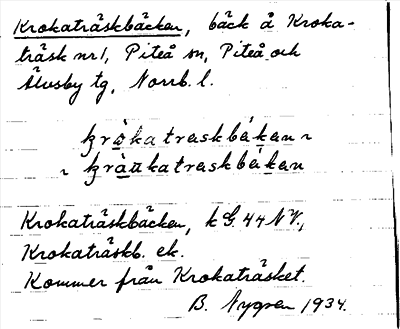 Krokaträskbäcken, bäck å Kroka-
träsk nr1, Piteå sn, Piteå och
Älvsby tg, Norrb. l.
kròkatraskbákan ~
~ kràukatraskbákan
Krokaträskbäcken, k G. 44 NV.,
Krokaträskb. ek.
Kommer från Krokaträsket.
B. Nygren 1934.